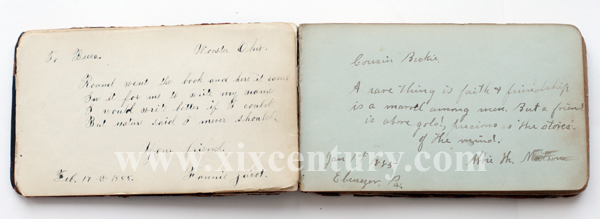 To
Wooster Ohio.
Round went the book and here it came
For it for me to write my name
I would write better if I could
But nature said I never should.
Your friend,
Feb. 17th 1885.
Cousin
A rare thing is faith & friendship
is a marvel among men. But a friend
is above gold, precious as the stores
of the mind.
Jan 1885
M.
Ebenezer, Pa.
www.xixcentury.com